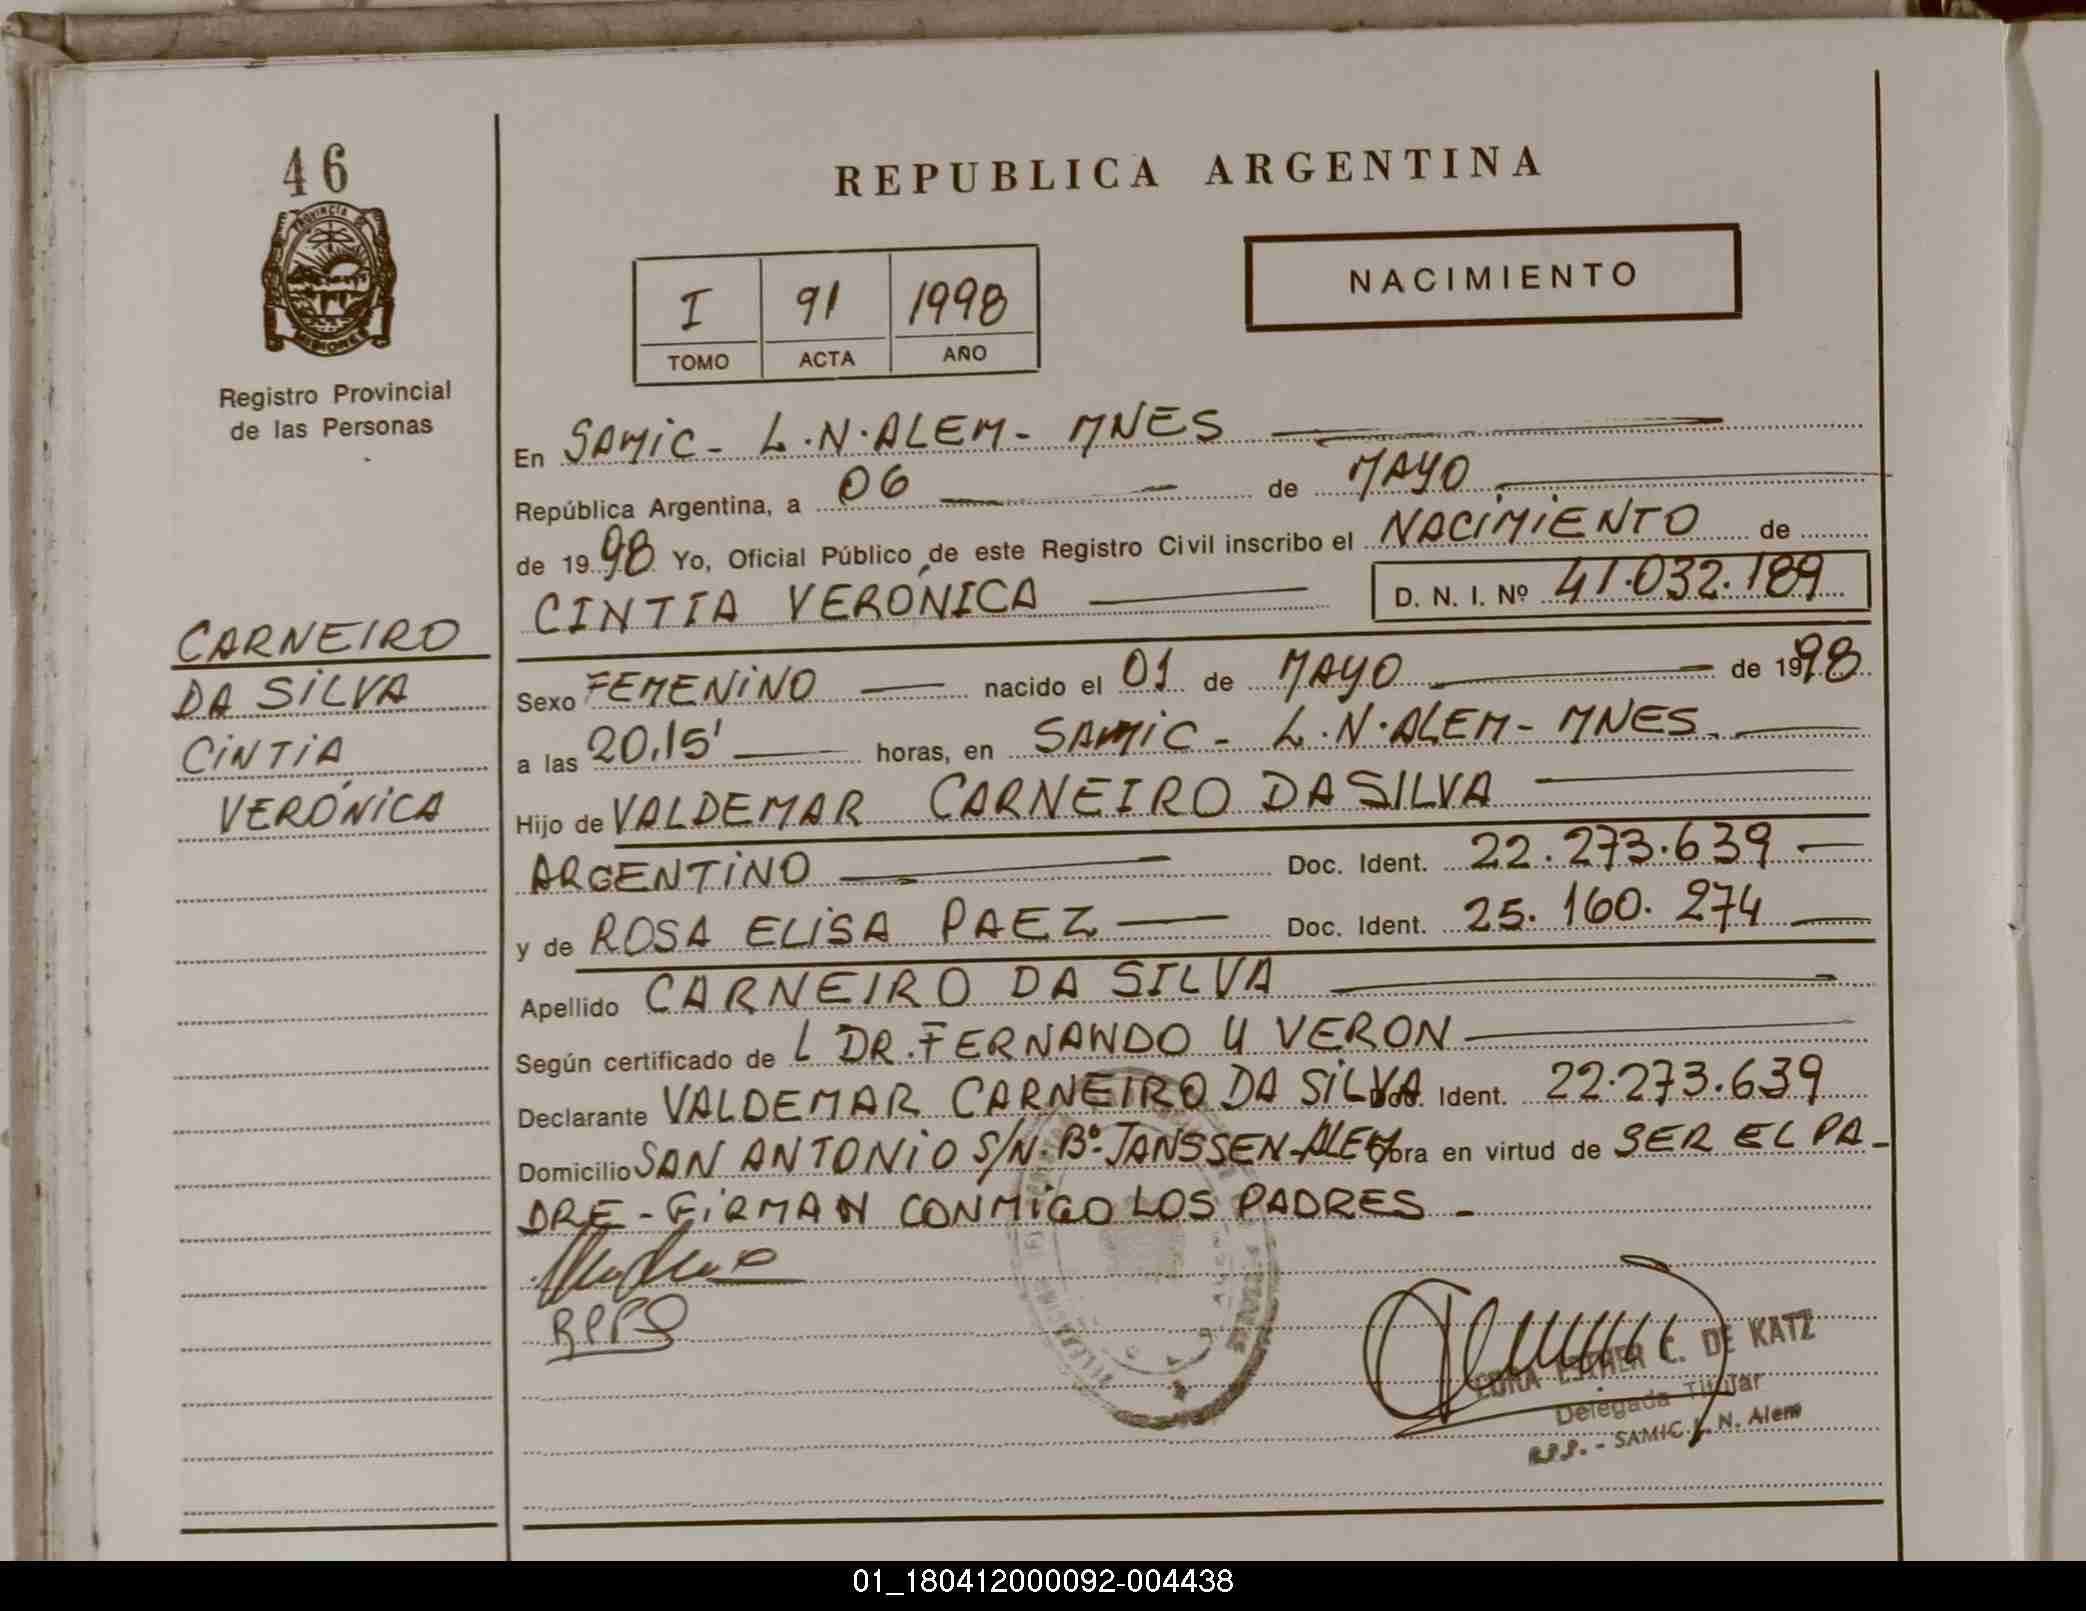 46
PROVINCIA DE
MISIONES
Registro Provincial
de las Personas
CARNEIRO
DA SILVA
CINTIA
VERÓNICA
REPUBLICA ARGENTINA
I 91 1998
TOMO ACTA AÑO
NACIMIENTO
En SAMIC - L.N.ALEM - MNES
República Argentina, a 06 de MAYO
de 1998 Yo, Oficial Público de este Registro Civil inscribo el NACIMIENTO de
CINTIA VERÓNICA D. N. I. Nº 41.032.189
Sexo FEMENINO nacido el 01 de MAYO de 1998
a las 20,15' horas, en SAMIC - L.N.ALEM - MNES.
Hijo de VALDEMAR CARNEIRO DA SILVA
ARGENTINO Doc. Ident. 22.273.639
y de ROSA ELISA PAEZ Doc. Ident. 25.160.274
Apellido CARNEIRO DA SILVA
Según certificado de L DR. FERNANDO U VERON
Declarante VALDEMAR CARNEIRO DA SILVA Doc. Ident. 22.273.639
Domicilio SAN ANTONIO S/N. Bº JANSSEN-ALEM Obra en virtud de SER EL PA-
DRE - FIRMAN CONMIGO LOS PADRES -
CORA ESTHER C. DE KATZ
Delegada Titular
R.P.P. - SAMIC L. N. Alem
01_180412000092-004438